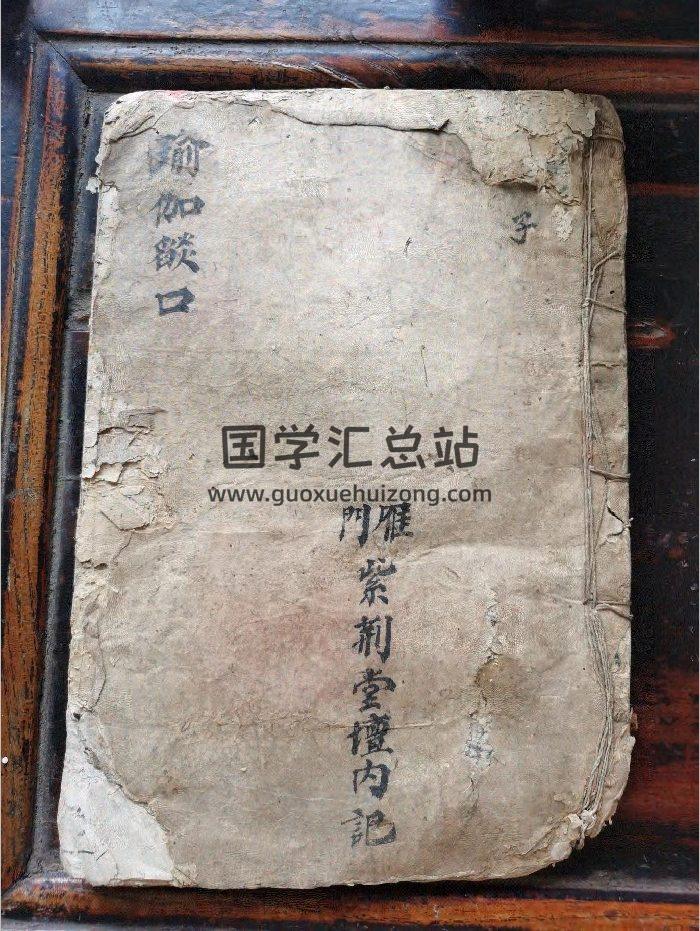 瑜伽燄口
子
国学汇总站
www.guoxuehuizong.com
雁門
紫荊堂壇內記